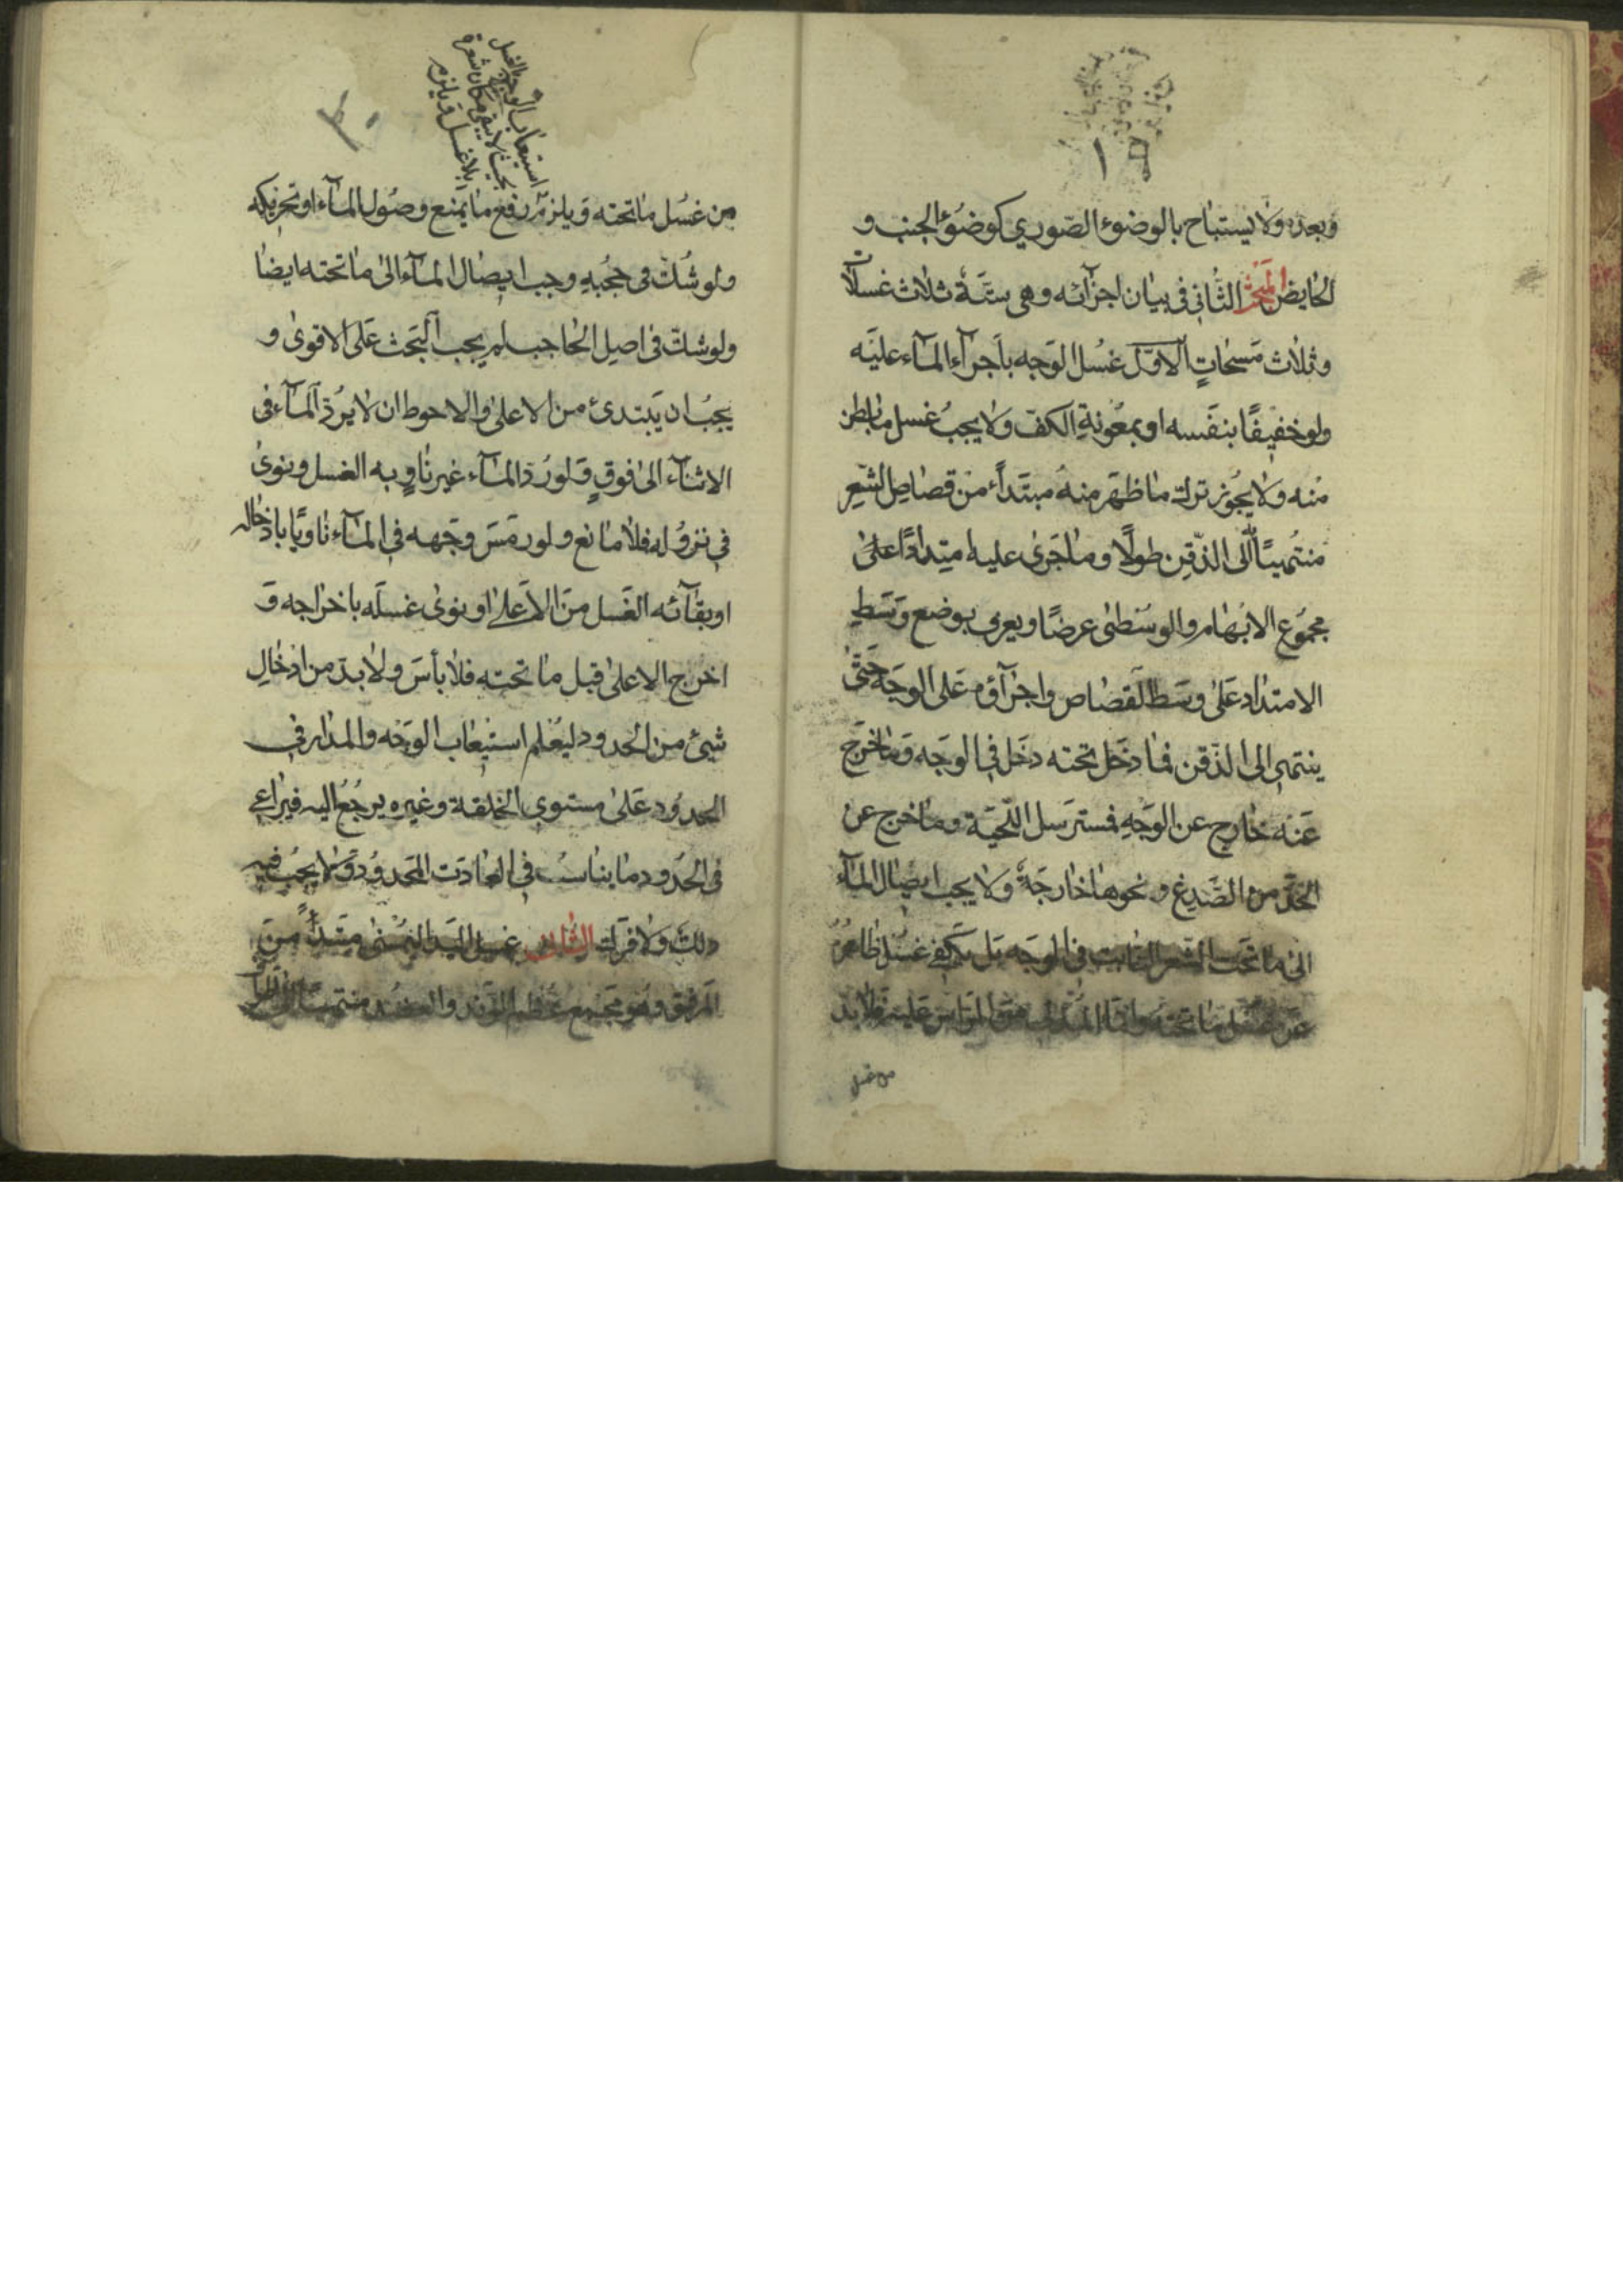 وبعده ولا يستباح بالوضوء الصّوري كوضوء الجنب و
الحايض المبحث الثّاني في بيان اجزآئه وهي ستّة ثلاث غسلات
وثلاث مسحاتٍ الاوّل غسل الوجه باجرآء المآء عليه
ولو خفيفًا بنفسه او بمعونة الكفّ ولا يجب غسل ما بطن
منه ولا يجوز ترك ما ظهر منه مبتدأ من قصاص الشّعر
منتهيًا الى الذّقن طولًا وما جرى عليه امتدادًا على
مجموع الابهام والوسطى عرضًا ويعرف بوضع وسط
الامتداد على وسط القصاص واجرآؤه على الوجه حتّى
ينتهى الى الذّقن فما دخل تحته دخل في الوجه وما خرج
عنه خارج عن الوجه فمسترسل اللّحية وما خرج عن
الحدّ من الصّدغ ونحوها خارجة ولا يجب ايصال المآء
الى ما تحت الشّعر النّابت في الوجه بل يكفى غسل ظاهره
عن غسل ما تحته وامّا المتدلّي من الرّاس عليه فلا بدّ
من غسل
استيعاب الوجه بالغسل
بحيث لا يبقى مكان شعرة
بلا غسل ويلزم
من غسل ما تحته ويلزم رفع ما يمنع وصول المآء او تحريكه
ولو شكّ في حجبه وجب ايصال المآء الى ما تحته ايضا
ولو شكّ في اصل الحاجب لم يجب البحث على الاقوى و
يجب ان يبتدئ من الاعلى والاحوط ان لا يردّ المآء في
الاثنآء الى فوقٍ ولو ردّ المآء غير ناوٍ به الغسل ونوى
في نزوله فلا مانع ولو رمس وجهه في المآء ناويًا بادخاله
او بقآئه الغسل من الاعلى او نوى غسله باخراجه و
اخرج الاعلى قبل ما تحته فلا بأس ولا بدّ من ادخال
شيئ من الحدود ليعلم استيعاب الوجه والمدار في
الحدود على مستوى الخلقة وغيره يرجع اليه فيراعى
في الحدود ما يناسب في العادة المحدود ولا يجب فيه
دلك ولا فرك الثاني غسل اليد اليمنى مبتدأ من
المرفق وهو مجمع عظم الزّند والعضد منتهيًا الى